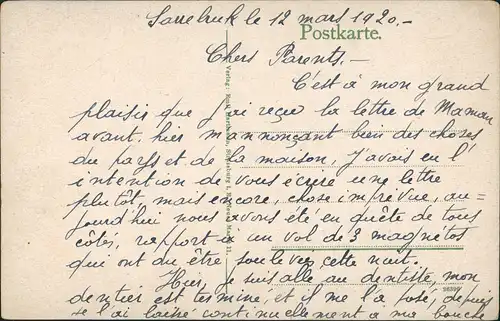 Sarrebruk le 12 mars 1920.-
Postkarte.
Chers Parents.-
C'est à mon grand
plaisir que j'ai reçue la lettre de Maman
avant, hier m'annonçant bien des choses
du pays et de la maison, j'avais eu l'
intention de vous écrire une lettre
plutôt, mais encore, chose imprévue, au-
jourd'hui nous avons été en quête de tous
côtés, rapport à un vol de 3 magnétos
qui ont du être, soulevés cette nuit.
Hier, je suis allé au dentiste, mon
dentier est terminé, et il me l'a posé, depuis
je l'ai laissé continuellement à ma bouche
Verlag: